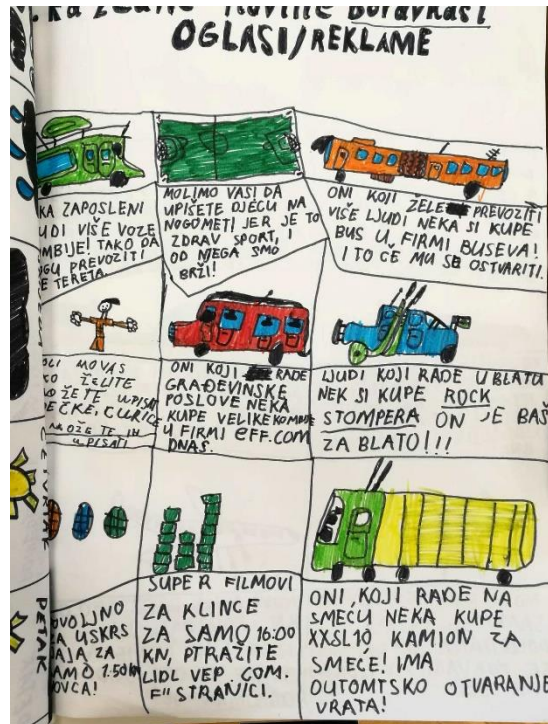 NOVINE BORAVKAŠI
OGLASI/REKLAME
KA ZAPOSLENI
UDI VIŠE VOZE
MBIJE! TAKO DA
OGU PREVOZITI
E TERETA.
MOLIMO VASI DA
UPIŠETE DJECU NA
NOGOMETI JER JE TO
ZDRAV SPORT, I
OD NJEGA SMO
BRŽI!
ONI KOJI ŽELE PREVOZITI
VIŠE LJUDI NEKA SI KUPE
BUS U FIRMI BUSEVA!
I TO ĆE MU SE OSTVARITI.
OLI MO VAS
KO ŽELITE
OŽETE UPISAT
EČKE, CURICE
MOŽETE IH
UPISATI
ONI KOJI RADE
GRAĐEVINSKE
POSLOVE NEKA
KUPE VELIKE KOMBIJE
U FIRMI eFF.COM
DNAS.
LJUDI KOJI RADE U BLATU
NEK SI KUPE ROCK
STOMPERA ON JE BAŠ
ZA BLATO!!!
OVOLJNO
ZA USKRS
JAJA ZA
AMO 1.50 KN
OVCA!
SUPER FILMOVI
ZA KLINCE
ZA SAMO 16:00
KN, PTRAŽITE
LIDL VEP COM.
F" STRANICI.
ONI KOJI RADE NA
SMEĆU NEKA KUPE
XXSL10 KAMION ZA
SMEĆE! IMA
OUTOMTSKO OTVARANJE
VRATA!
ČETVRTAK
PETAK